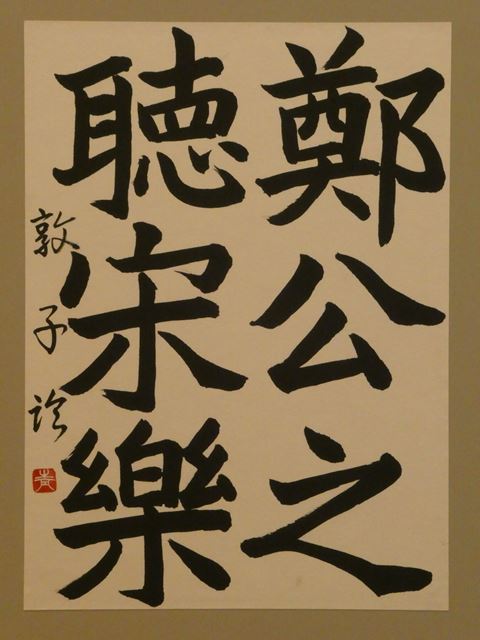 鄭公之
聽宋樂
敦子臨